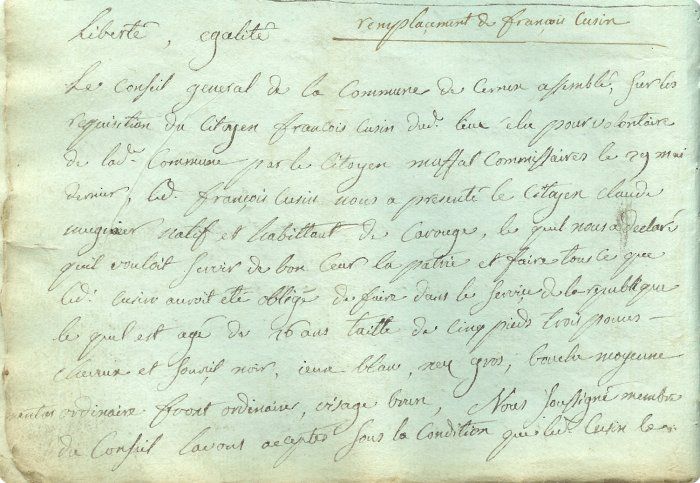 remplacement de françois Cusin
Liberté, egalité
Le Conseil general de la Commune de Cernex assemblé, sur les
requisition du Citoyen françois Cusin dud. lieu élu pour volontaire
de lad. Commune par le Citoyen Commissaires le 29 mai
dernier, led. françois Cusin nous a presenté le Citoyen claude
natif et habittant de Carouge, le quel nous a declaré
quil vouloit servir de bon Ceur la patrie et faire tous ce que
led. Cusin auroit eté obligé de faire dans le service de la republique
le quel est agé de 26 ans taille de cinq pieds trois pouces
cheveux et sourcil noir, ieux bleau, nez gros, bouche moyenne
menton ordinaire front ordinaire, visage brun, Nous soussigné membre
du Conseil lavons accepter sous la Condition que led. Cusin le